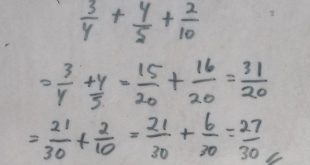 3/4 + 4/5 + 2/10
= 3/4 + 4/5 = 15/20 + 16/20 = 31/20
= 21/30 + 2/10 = 21/30 + 6/30 = 27/30